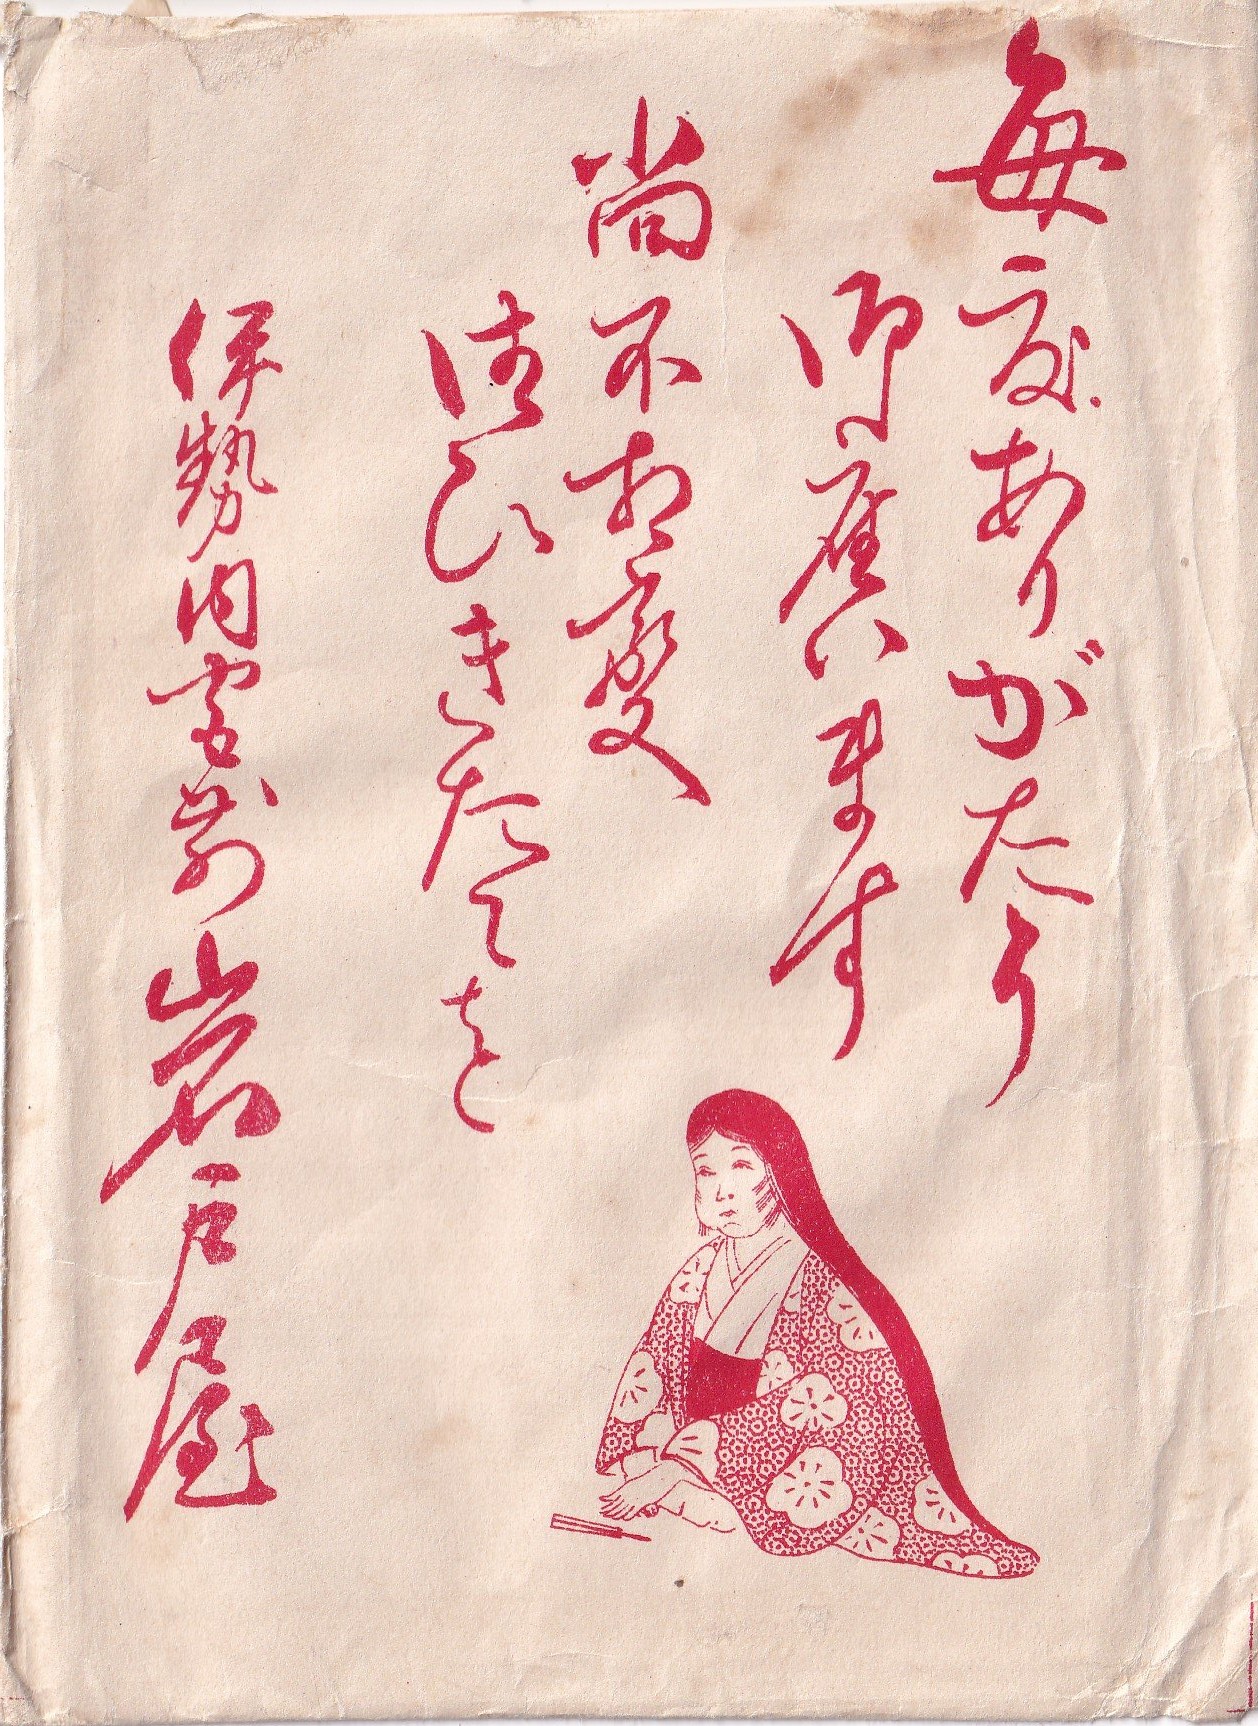 毎度ありがたう
御座います
尚不相変
御ひきたてを
伊勢内宮前 岩戸屋